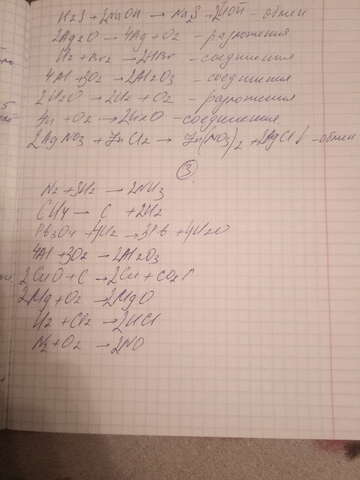 H2S + 2NaOH → Na2S + 2HOH - обмен
2Ag2O → 4Ag + O2 - разложения
H2 + Br2 → 2HBr - соединения
4Al + 3O2 → 2Al2O3 - соединения
2H2O → 2H2 + O2 - разложения
+ O2 → - соединения
2AgNO3 + ZnCl2 → Zn(NO3)2 + 2AgCl↓ - обмен
3
N2 + 3H2 → 2NH3
CH4 → C + 2H2
Pb3O4 + 4H2 → 3Pb + 4H2O
4Al + 3O2 → 2Al2O3
2CuO + C → 2Cu + CO2↑
2Mg + O2 → 2MgO
H2 + Cl2 → 2HCl
N2 + O2 → 2NO